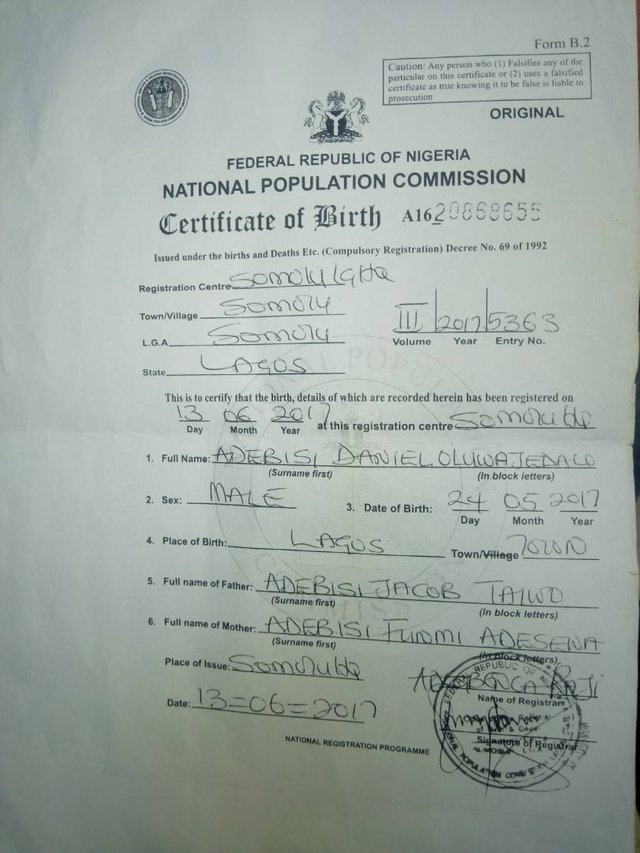 Form B.2
Caution: Any person who (1) Falsifies any of the
particular on this certificate or (2) uses a falsified
certificate as true knowing it to be false is liable to
prosecution
ORIGINAL
FEDERAL REPUBLIC OF NIGERIA
NATIONAL POPULATION COMMISSION
Certificate of Birth A16 20868655
Issued under the births and Deaths Etc. (Compulsory Registration) Decree No. 69 of 1992
Registration Centre Somolu
Town/Village Somolu
L.G.A Somolu
III 2017 5363
Volume Year Entry No.
State LAGOS
This is to certify that the birth, details of which are recorded herein has been registered on
13 06 2017 at this registration centre
Day Month Year
1. Full Name: ADEBISI DANIEL
(Surname first) (In block letters)
2. Sex: MALE 3. Date of Birth: 24 05 2017
Day Month Year
4. Place of Birth: LAGOS Town/Village
5. Full name of Father: ADEBISI JACOB TAIWO
(Surname first) (In block letters)
6. Full name of Mother: ADEBISI FUNMI
(Surname first) (In block letters)
Place of Issue:
Name of Registrar
Date: 13=06=2017
Signature of Registrar
NATIONAL REGISTRATION PROGRAMME